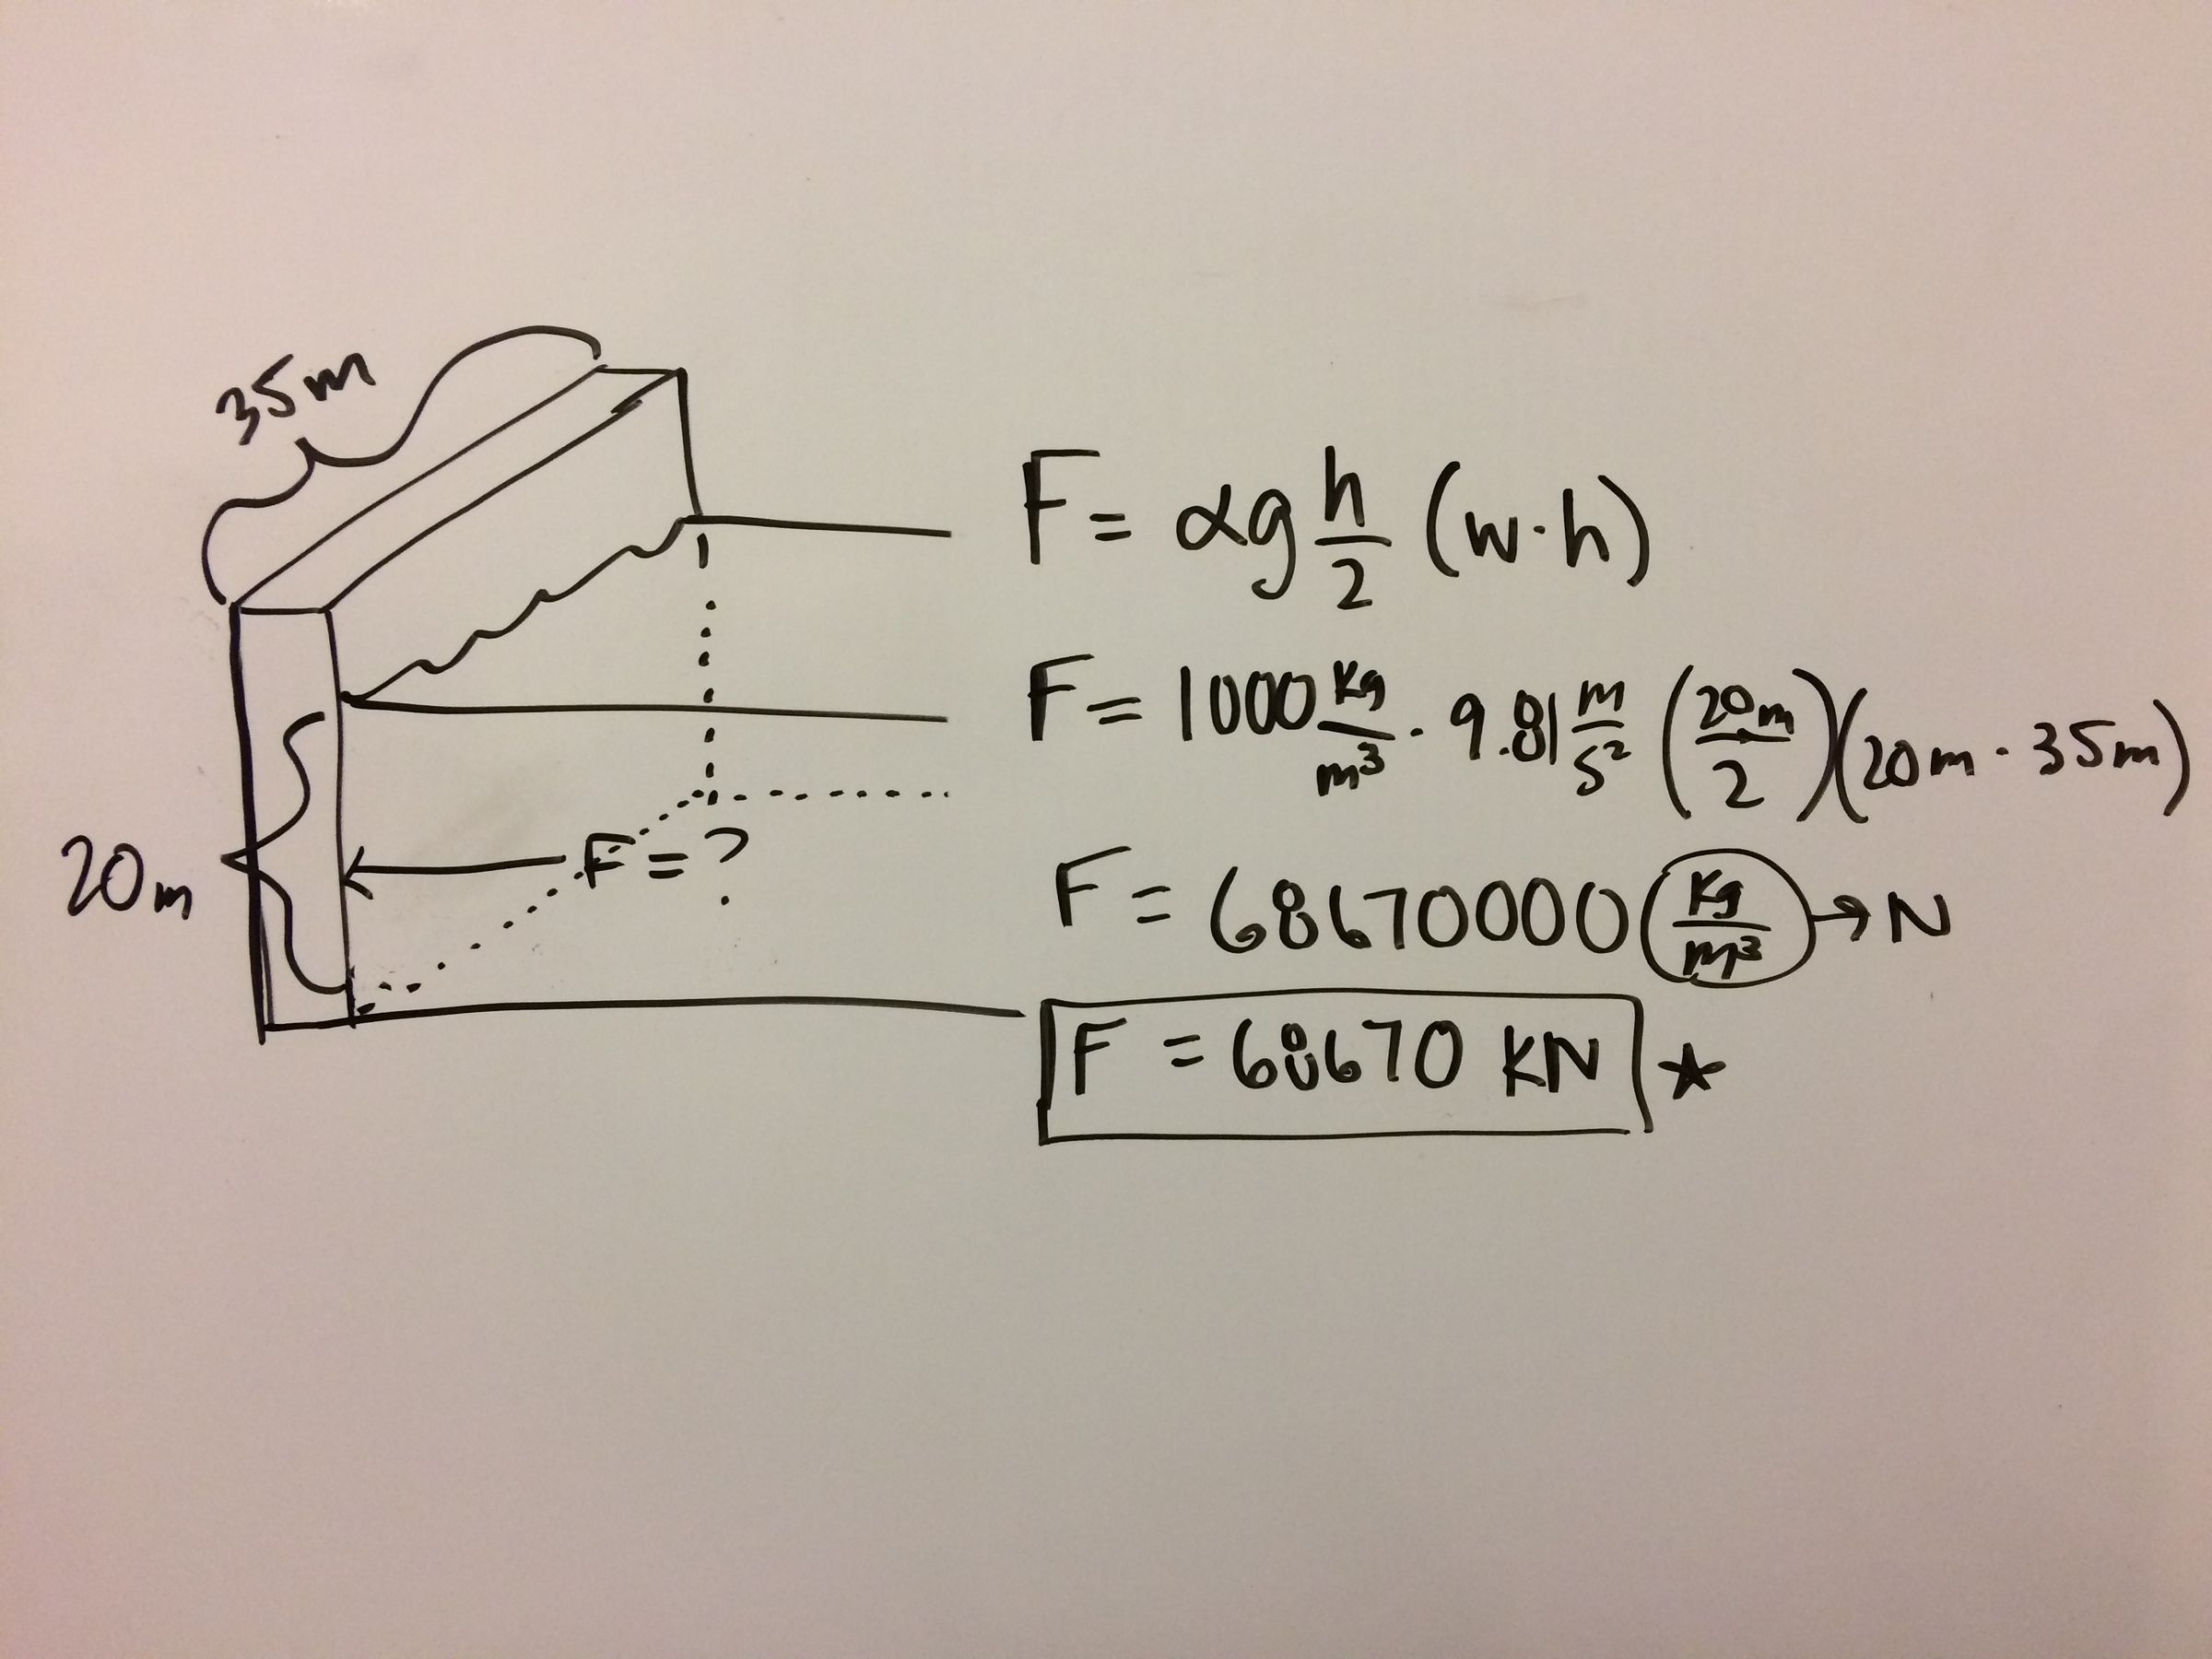 35m
20m
F = ?
F = αg h/2 (w·h)
F = 1000 kg/m³ · 9.81 m/s² (20m/2)(20m · 35m)
F = 68670000 (kg/m³) → N
F = 68670 KN ★